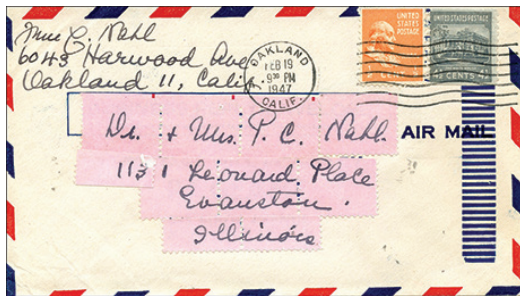 C. Nahl
6043 Harwood Ave
Oakland 11, Calif
OAKLAND
FEB 19
9 30 PM
1947
CALIF.
UNITED
STATES
POSTAGE
CENT
UNITED STATES POSTAGE
4½ CENTS 4½
AIR MAIL
Dr. + Mrs. P. C. Nahl
1131 Leonard Place
Evanston
Illinois